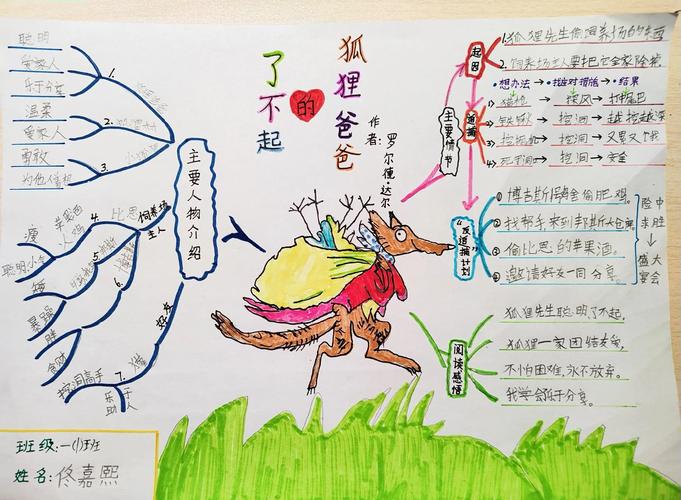 了不起
的
狐狸爸爸
作者:罗尔德达尔
主要人物介绍
聪明
爱家人
乐于分享
1.
温柔
爱家人
2.
勇敢
为他人着想
3.
饲养场主人
4.
瘦
聪明
比恩
5.
矮
暴躁
6.
胖
贪财
好友
7.
獾
挖洞高手
乐于助人
主要情节
起因
1.狐狸先生偷饲养场的东西
2.饲养场主要把它全家除掉
追捕
想办法→找应对措施→结果
1) 猎枪→探风→打掉尾巴
2) 铁锹→挖洞→越挖越深
3) 挖掘机→挖洞→又累又个我
4) 死守洞→挖洞→安全
"反追捕计划"
① 博吉斯1号鸡舍偷肥鸡。
② 找帮手来到邦斯大仓库。
③ 偷比恩的苹果酒。
④ 邀请好友一同分享。
险中求胜
↓
盛大宴会
阅读感悟
狐狸先生聪明了不起,
狐狸一家团结友爱,
不怕困难,永不放弃。
我学会乐于分享。
班级:一(1)班
姓名:佟嘉熙